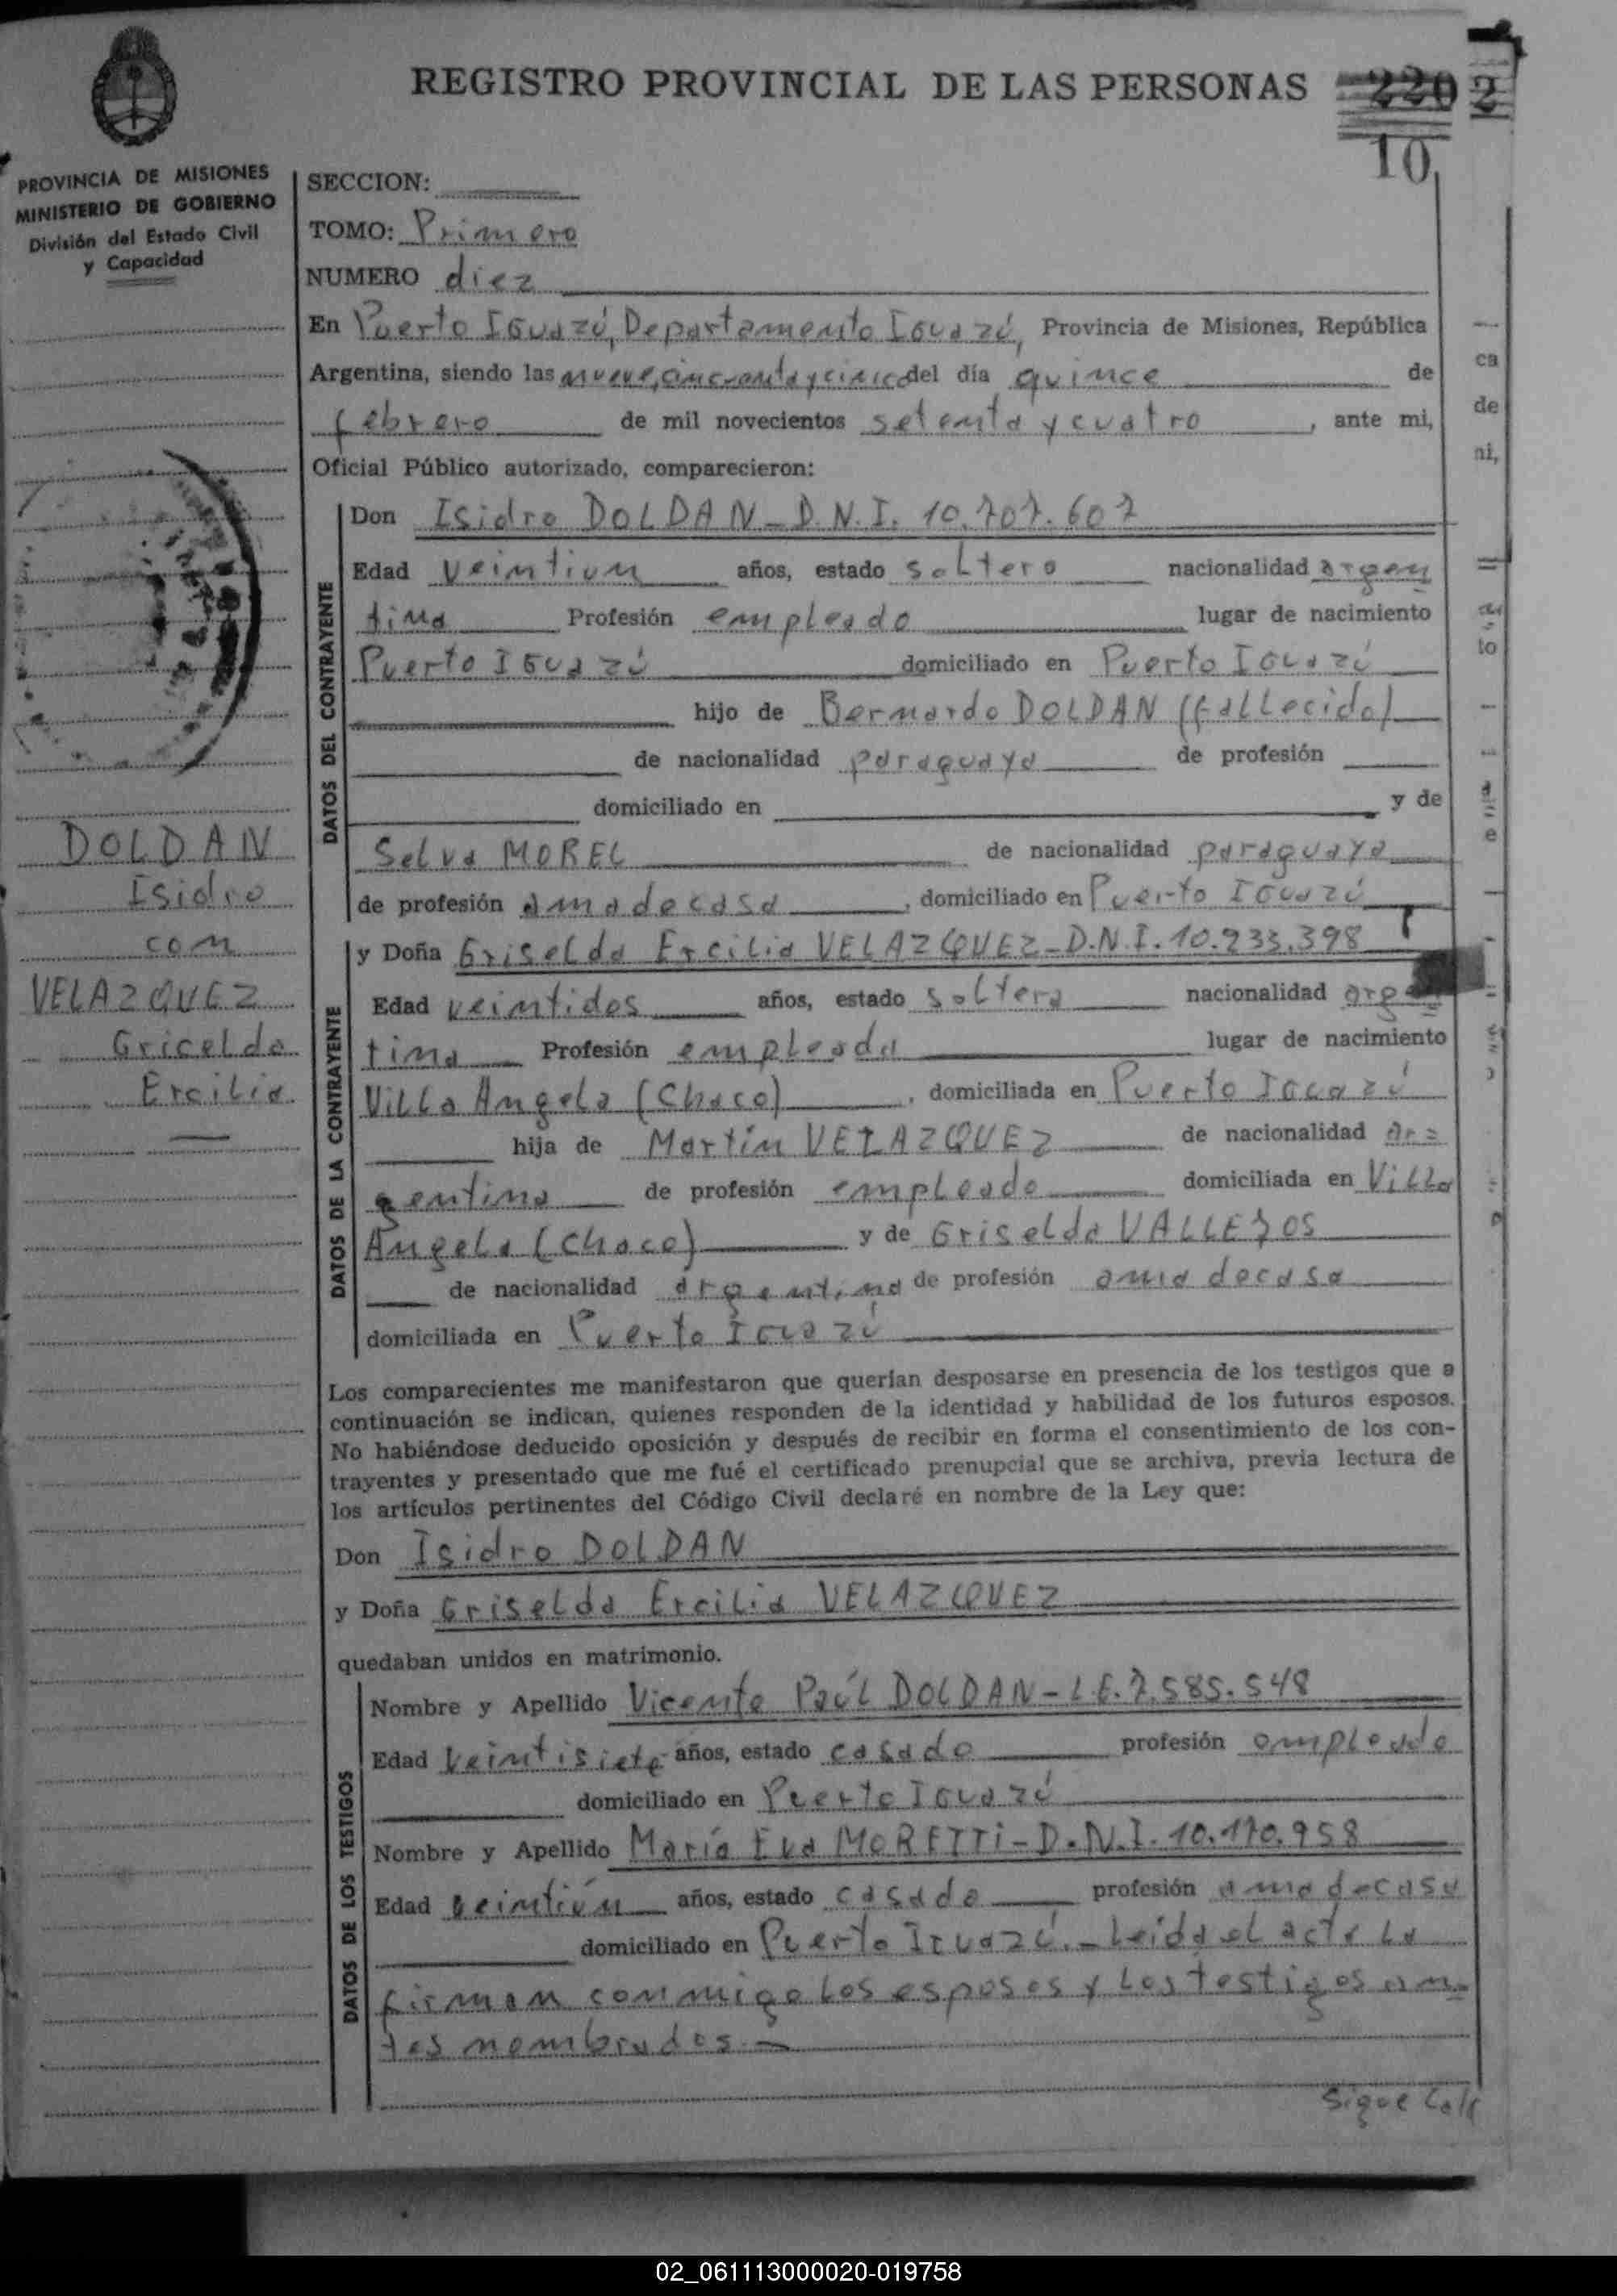 REGISTRO PROVINCIAL DE LAS PERSONAS 220 2
10
PROVINCIA DE MISIONES
MINISTERIO DE GOBIERNO
División del Estado Civil
y Capacidad
SECCION:
TOMO: Primero
NUMERO diez
En Puerto Iguazú, Departamento Iguazú, Provincia de Misiones, República
Argentina, siendo las nueve, cincuenta y cinco del día quince de
febrero de mil novecientos setenta y cuatro, ante mi,
Oficial Público autorizado, comparecieron:
DATOS DEL CONTRAYENTE
Don Isidro DOLDAN - D.N.I. 10.707.607
Edad veintiun años, estado soltero nacionalidad argen
tina Profesión empleado lugar de nacimiento
Puerto Iguazú domiciliado en Puerto Iguazú
hijo de Bernardo DOLDAN (fallecido)
de nacionalidad paraguaya de profesión
domiciliado en y de
Selva MOREL de nacionalidad paraguaya
de profesión ama de casa, domiciliado en Puerto Iguazú
DOLDAN
Isidro
con
VELAZQUEZ
Gricelda
Ercilia
DATOS DE LA CONTRAYENTE
y Doña Griselda Ercilia VELAZQUEZ - D.N.I. 10.933.398
Edad veintidos años, estado soltera nacionalidad argen
tina Profesión empleada lugar de nacimiento
Villa Angela (Chaco), domiciliada en Puerto Iguazú
hija de Martín VELAZQUEZ de nacionalidad ar=
gentina de profesión empleado domiciliada en Villa
Angela (Chaco) y de Griselda VALLEJOS
de nacionalidad argentina de profesión ama de casa
domiciliada en Puerto Iguazú
Los comparecientes me manifestaron que querían desposarse en presencia de los testigos que a
continuación se indican, quienes responden de la identidad y habilidad de los futuros esposos.
No habiéndose deducido oposición y después de recibir en forma el consentimiento de los con-
trayentes y presentado que me fué el certificado prenupcial que se archiva, previa lectura de
los artículos pertinentes del Código Civil declaré en nombre de la Ley que:
Don Isidro DOLDAN
y Doña Griselda Ercilia VELAZQUEZ
quedaban unidos en matrimonio.
DATOS DE LOS TESTIGOS
Nombre y Apellido Vicente Paúl DOLDAN - L.E. 7.585.548
Edad veintisiete años, estado casado profesión empleado
domiciliado en Puerto Iguazú
Nombre y Apellido María Eva MORETTI - D.N.I. 10.170.958
Edad veintiún años, estado casada profesión ama de casa
domiciliado en Puerto Iguazú. - Leida el acta la
firman conmigo los esposos y los testigos an=
tes nombrados. -
Sigue
ca
de
ni,
to
e
02_061113000020-019758